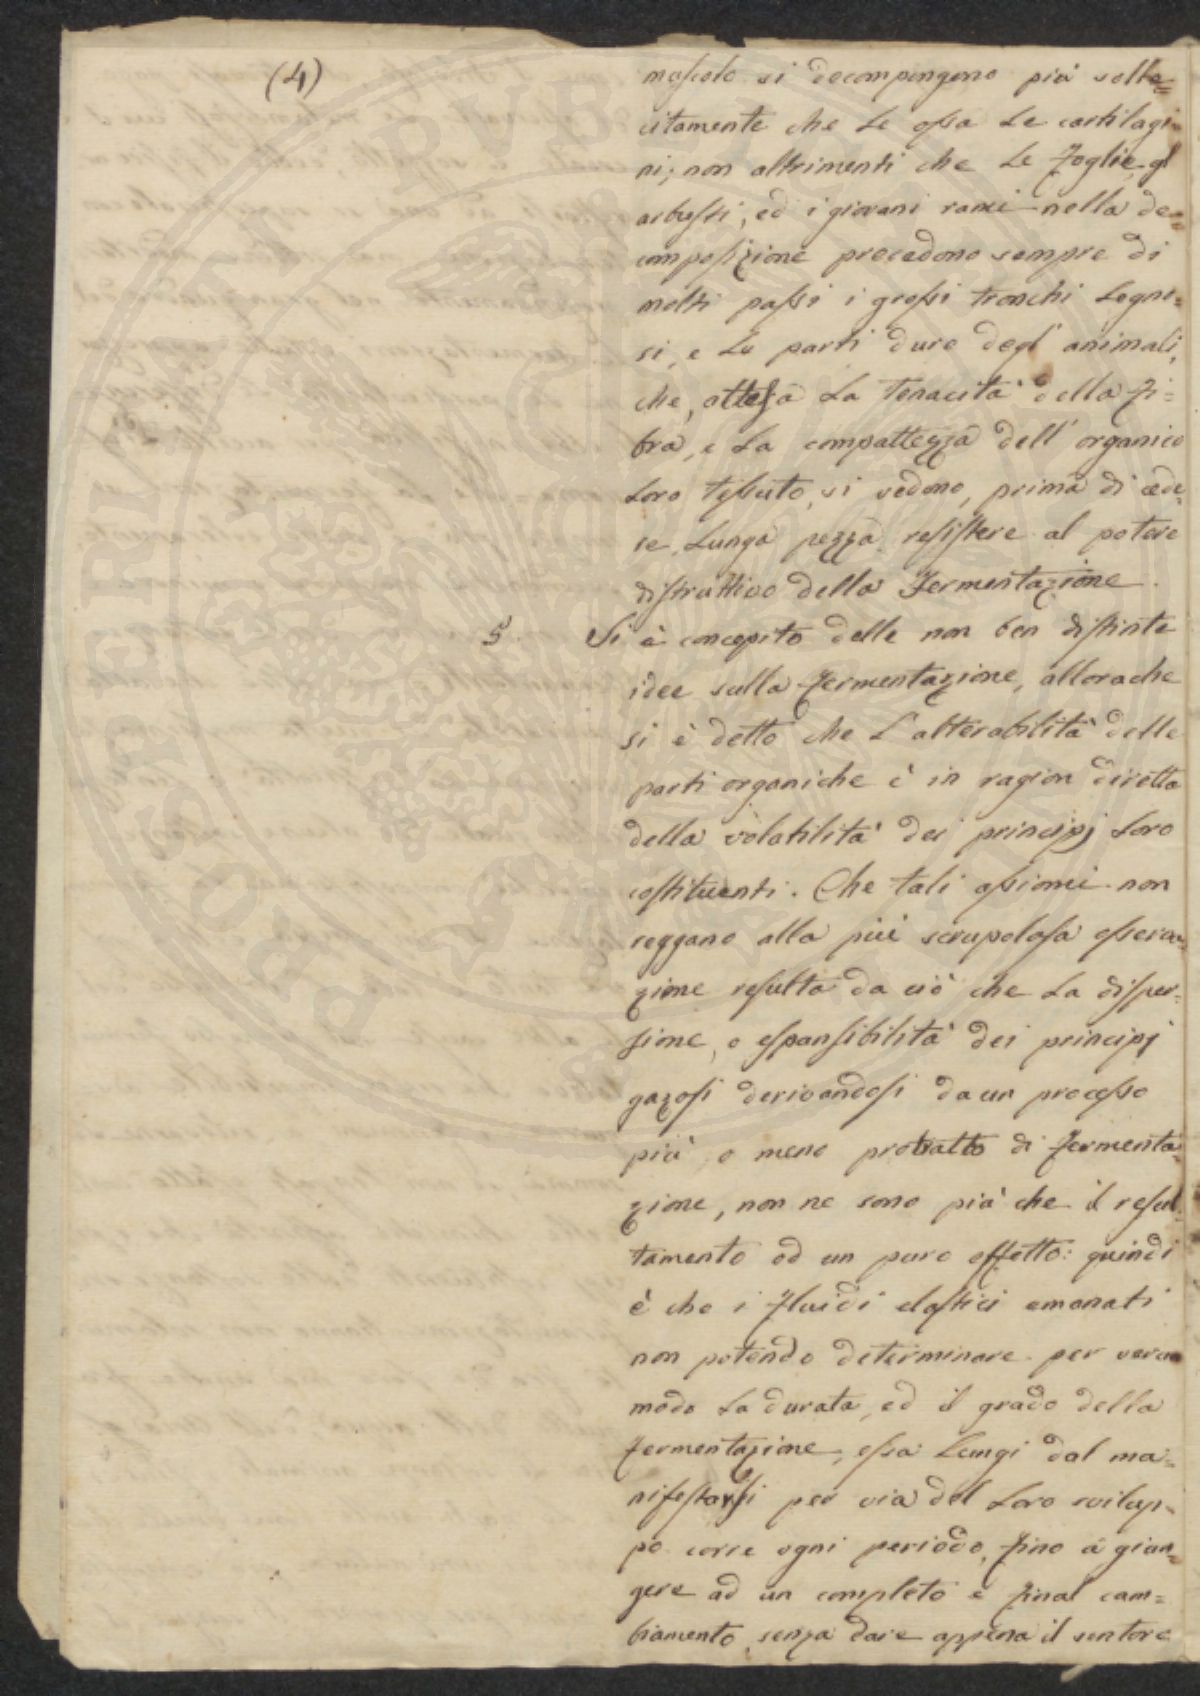 (4)
muscolo si decompongono più solle=
citamente che le ossa le cartilagi=
ni; non altrimenti che le foglie, gl'
arbusti, ed i giovani rami nella de=
composizione precedono sempre di
molti passi i grossi tronchi legno=
si, e le parti dure degl' animali,
che, attesa la tenacità della fi=
bra, e la compattezza dell' organico
loro tessuto, si vedono, prima di cede=
re, lunga pezza resistere al potere
distruttivo della fermentazione.
5. Si è concepito delle non ben distinte
idee sulla fermentazione, allorache
si è detto che l'alterabilità delle
parti organiche è in ragion diretta
della volatilità dei principj loro
costituenti. Che tali assiomi non
reggano alla più scrupolosa osserva=
zione resulta da ciò che la disper=
sione, o espansibilità dei principj
gazosi derivandosi da un processo
più, o meno protratto di fermenta=
zione, non ne sono più che il resul=
tamento ed un puro effetto: quindi
è che i fluidi elastici emanati
non potendo determinare per verun
modo la durata, ed il grado della
fermentazione, essa lungi dal ma=
nifestarsi per via del loro svilup=
po corre ogni periodo, fino a giun=
gere ad un completo e final cam=
biamento senza dare appena il sentore
PUBLIC